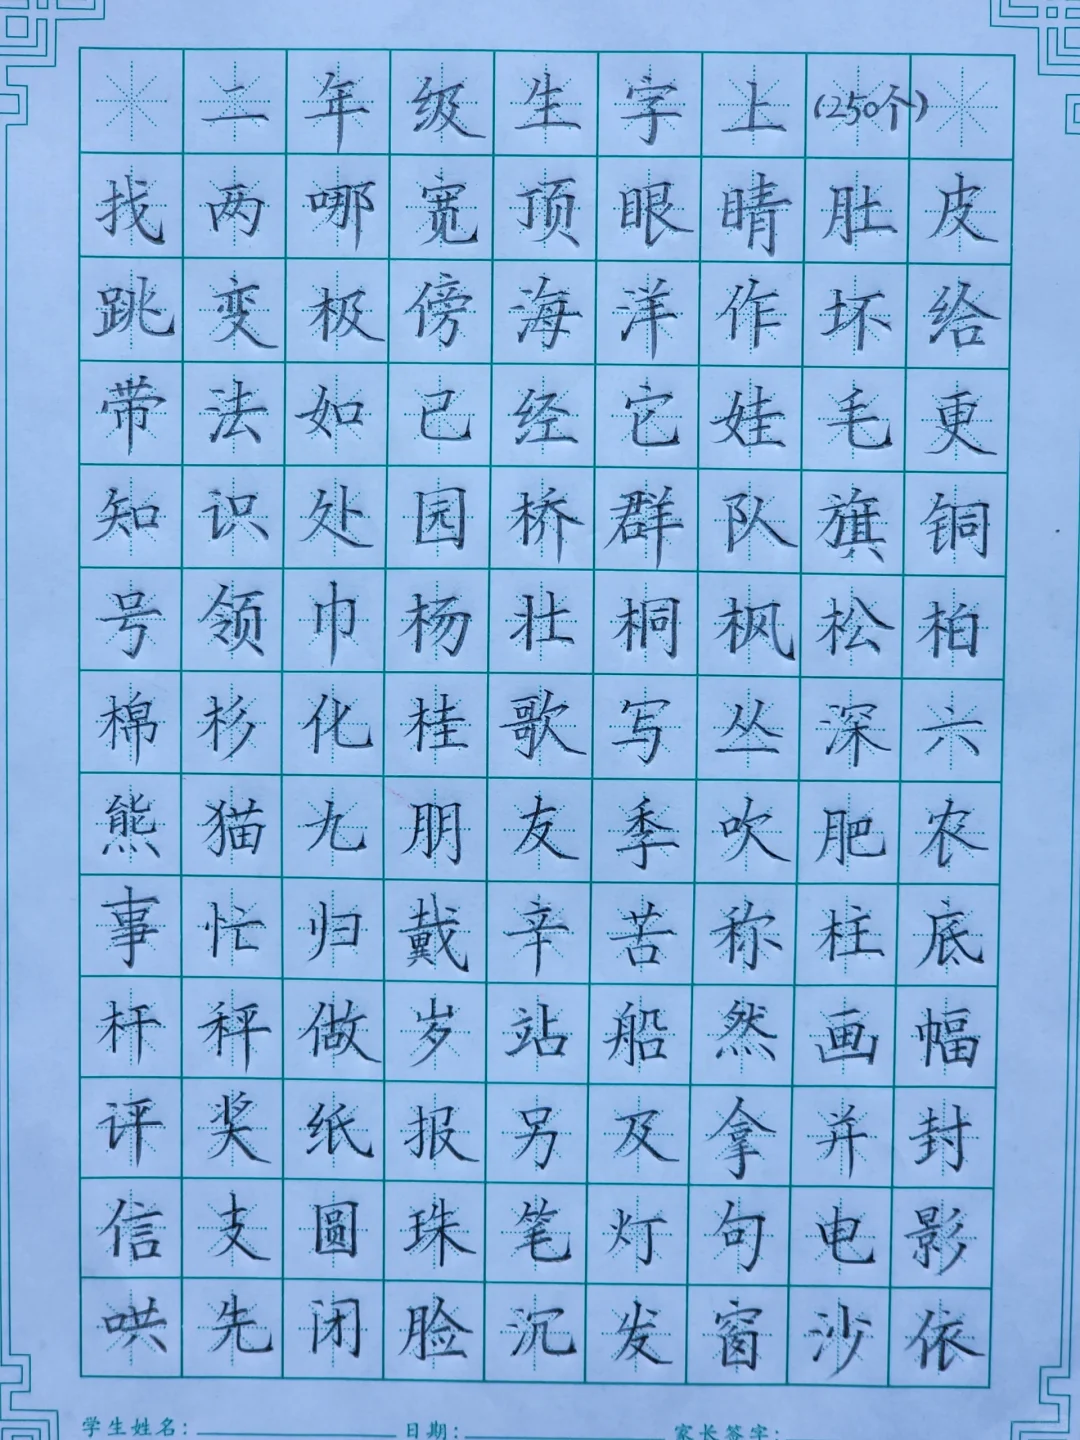 二年级生字上(250个)
找两哪宽顶眼睛肚皮
跳变极傍海洋作坏给
带法如己经它娃毛更
知识处园桥群队旗铜
号领巾杨壮桐枫松柏
棉杉化桂歌写丛深六
熊猫九朋友季吹肥农
事忙归戴辛苦称柱底
杆秤做岁站船然画幅
评奖纸报另及拿并封
信支圆珠笔灯句电影
哄先闭脸沉发窗沙依
学生姓名: 日期: 家长签字: